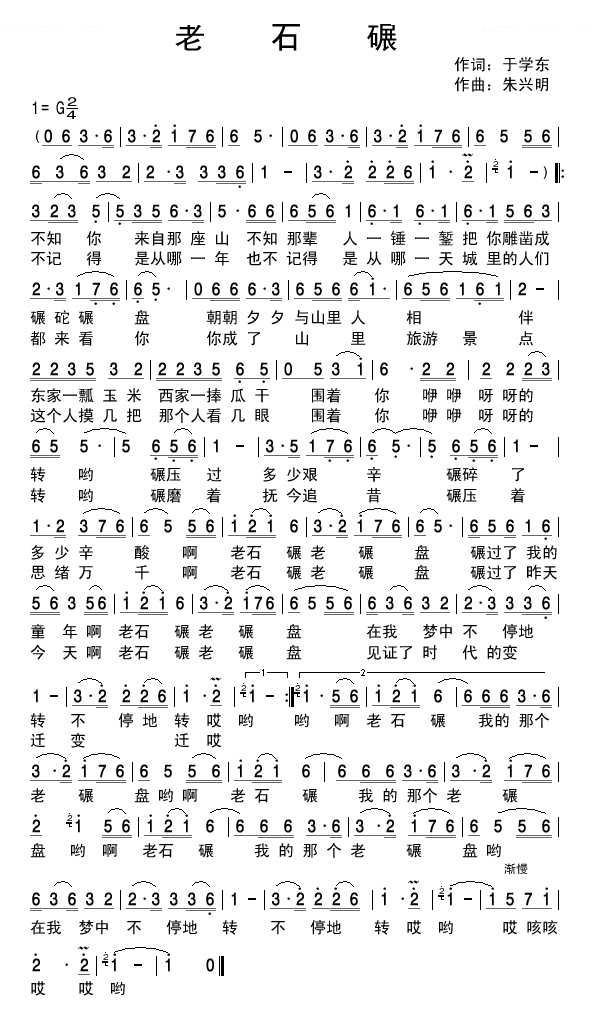 老 石 碾
作词：于学东
作曲：朱兴明
1= G 2/4
(0 6 3·6 | 3·2 1 7 6 | 6 5· | 0 6 3·6 | 3·2 1 7 6 | 6 5 5 6 |
6 3 6 3 2 | 2·3 3 3 6 | 1 - | 3·2 2 2 6 | 1·2 | 1 -) ‖:
3 2 3 5 | 5 3 5 6·3 | 5·6 6 | 6 5 6 1 | 6·1 6·1 | 6·1 5 6 3 |
不知 你 来自那 座 山 不知 那辈 人 一 锤 一 錾 把 你雕凿成
不记 得 是从哪 一 年 也不 记得 是 从 哪 一 天 城 里的人们
2·3 1 7 6 | 6 5· | 0 6 6 6·3 | 6 5 6 6 1· | 6 5 6 1 6 1 | 2 - |
碾 砣 碾 盘 朝朝 夕 夕 与山里 人 相 伴
都 来 看 你 你成 了 山 里 旅游 景 点
2 2 3 5 3 2 | 2 2 3 5 6 5 | 0 5 3 1 | 6 · 2 2 | 2 2 2 3 |
东家一瓢 玉 米 西家一捧 瓜 干 围着 你 咿 咿 呀 呀的
这个人摸 几 把 那个人看 几 眼 围着 你 咿 咿 呀 呀的
6 5 5 · | 5 6 5 6 | 1 - | 3·5 1 7 6 | 6 5 · | 5 6 5 6 |
转 哟 碾压 过 多 少艰 辛 碾碎 了
转 哟 碾磨 着 抚 今追 昔 碾压 着
1·2 3 7 6 | 6 5 5 6 | 1 2 1 6 | 3·2 1 7 6 | 6 5· | 6 5 6 1 6 |
多 少 辛 酸 啊 老石 碾 老 碾 盘 碾过了 我的
思 绪 万 千 啊 老石 碾 老 碾 盘 碾过了 昨天
5 6 3 5 6 | 1 2 1 6 | 3·2 1 7 6 | 6 5 5 6 | 6 3 6 3 2 | 2·3 3 3 6 |
童 年 啊 老石 碾 老 碾 盘 在我 梦中 不 停地
今 天 啊 老石 碾 老 碾 盘 见证 了 时 代 的变
1 - | 3·2 2 2 6 | 1·2 | 1 - :‖ 1· 5 6 | 1 2 1 6 | 6 6 6 3·6 |
转 不 停地 转 哎 哟 哟 啊 老 石 碾 我的 那个
迁 变 迁 哎
3·2 1 7 6 | 6 5 5 6 | 1 2 1 6 | 6 6 6 3·6 | 3·2 1 7 6 |
老 碾 盘 哟 啊 老 石 碾 我 的 那个 老 碾
2 1 5 6 | 1 2 1 6 | 6 6 3·6 | 3·2 1 7 6 | 6 5 5 6 |
盘 哟 啊 老石 碾 我 的 那 个 老 碾 盘 哟
渐慢
6 3 6 3 2 | 2·3 3 3 6 | 1 - | 3·2 2 2 6 | 1·2 | 1 - | 1 5 7 1 |
在我 梦 中 不 停地 转 不 停地 转 哎 哟 哎 咳咳
2 · 2 | 1 - | 1 0 ‖
哎 哎 哟